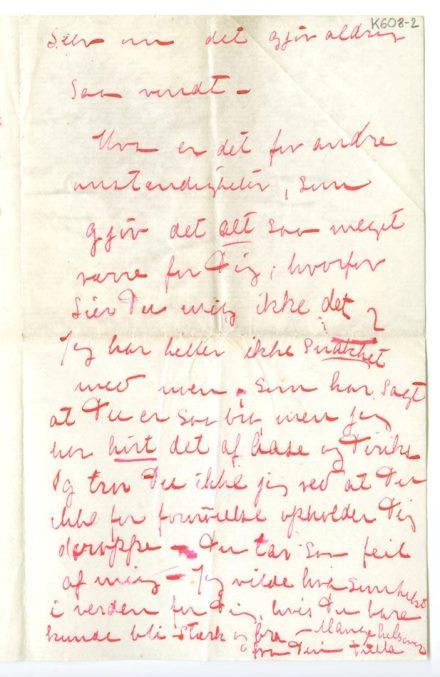 K608-2
selv om det gjør aldrig
saa vondt –
Hva er det for andre
omstendigheter, som
gjør det alt saa meget
værre for Dig; hvorfor
sier Du mig ikke det?
Jeg har heller ikke snakket
med noen, som har sagt
at Du er saa bra men jeg
har hørt det af Aase og
Og tror Du ikke jeg ved at Du
ikke for fornøielse opholder Dig
deroppe – Du tar saa feil
af mig – Jeg vilde hvasomhelst
i verden for Dig, hvis Du bare
kunde bli sterk og bra – Mange hilsener
fra Din Tulla